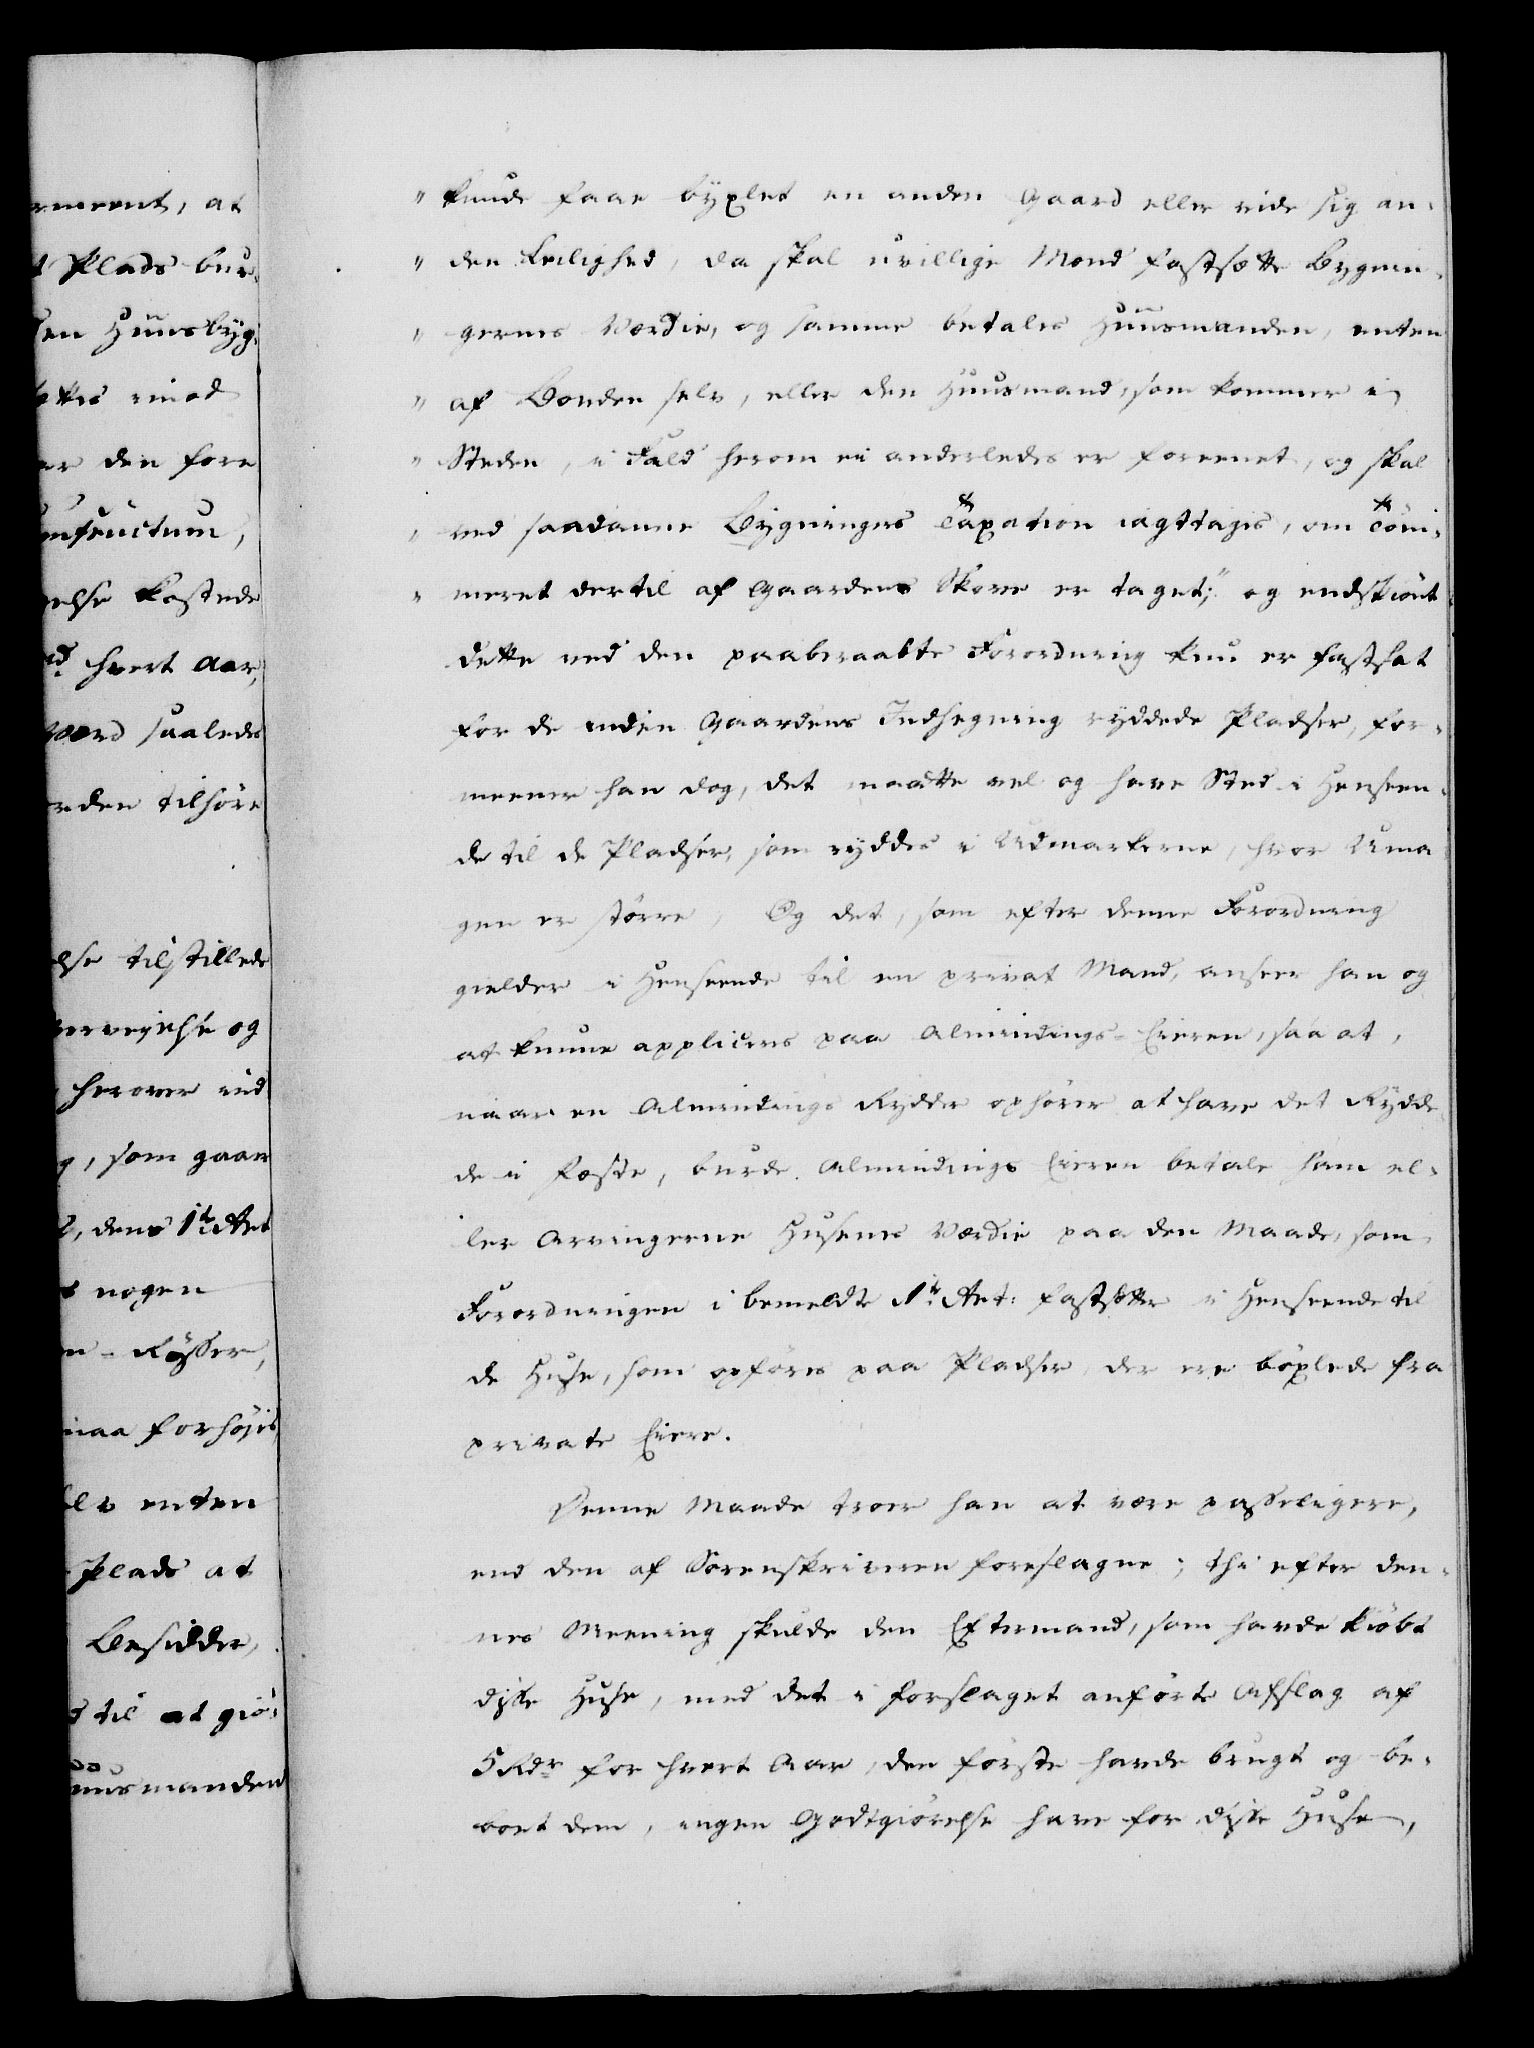 rmeent, at
t Plads bur-
en Huusbyg-
ttes imod
er den fore
usfructum,
else kostede
rd hvert Aar,
værd saaledes
rden tilhøre
lse tilstillede
ervejelse og
herover ind
g, som gaar
2, dens 1te Art
s nogen
n-Rysser,
maa forhøjes
elv enten
Plads at
Besidder,
d til at giø-
uusmanden
" kunde faae byxlet en anden Gaard eller vide sig an-
" den Leilighed, da skal uvillige Mænd fastsætte Bygnin-
" gernes Værdie, og samme betales Huusmanden, enten
" af Bonden selv, eller den Huusmand, som kommer i
" Stedet, i Fald herom ei anderledes er foreenet, og skal
" ved saadanne Bygningers Taxation iagttages, om Töm-
" meret dertil af Gaardens Skove er taget;" og endskiönt
dette ved den paaberaabte Forordning kun er fastsat
for de inden Gaardens Indhegning ryddede Pladser, for-
meener han dog, det maatte vel og have Sted i Henseen-
de til de Pladser, som ryddes i Udmarkerne, hvor Uma-
gen er større, Og det, som efter denne Forordning
gielder i Henseende til en privat Mand, anseer han og
at kunne appliceres paa Almindings-Eieren, saa at,
naar en Almindings Rydder ophører at have det Rydde-
de i Fæste, burde Almindings Eieren betale ham el-
ler Arvingerne Husenes Værdie paa den Maade, som
Forordningen i bemeldte 1te Art: fastsætter i Henseende til
de Huse, som opføres paa Pladser, der ere böxlede fra
private Eiere.
Denne Maade troer han at være passeligere,
end den af Sorenskriveren foreslagne; thi efter den-
nes Meening skulde den Eftermand, som havde kiøbt
disse Huse, med det i Forslaget anførte Afslag af
5 Rdr for hvert Aar, den første havde brugt og be-
boet dem, ingen Godtgiørelse have for disse Huse,